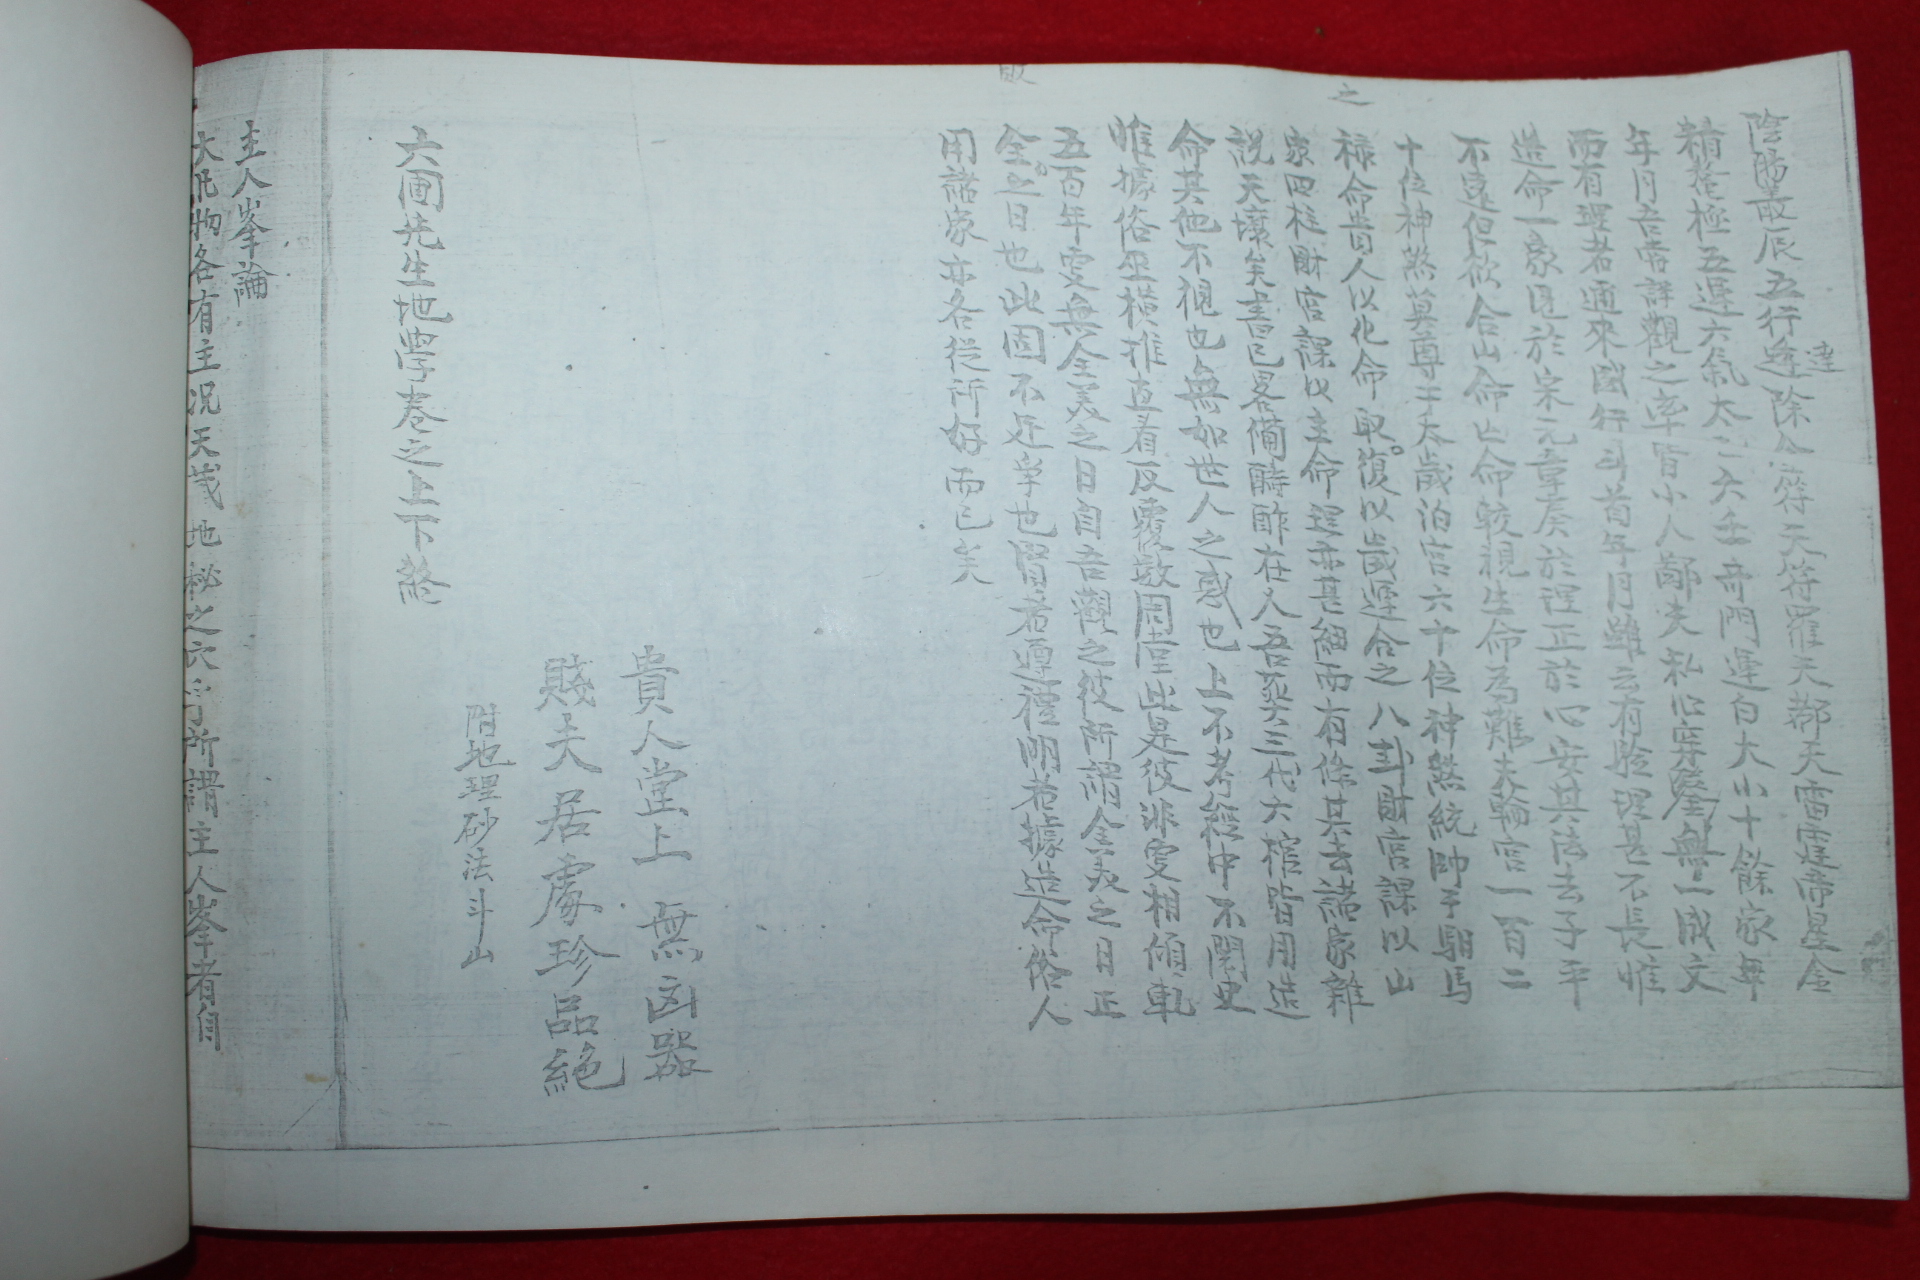 陰陽叢辰五行達除金符天符羅天都天雷霆帝星金
精鰲極五運六氣太乙六壬奇門運白大小十餘家每
年月吾嘗詳觀之率皆小人鄙夫私心穿鑿無一成文
而有理者通來國行斗首年月雖云有驗理甚不長惟
造命一家見於宋元章奏於理正於心安其法去子平
不遠但欲合山命亡命較視生命為難夫輪宮一百二
十位神煞莫尊于太歲泊宮六十位神煞統帥乎馹馬
祿命貴人以化命取之復以歲運合之八卦財官課以山
家四柱財官課以主命選亦甚細而有條其去諸家雜
說天壤矣書已畧備酧酢在人吾家三代六棺皆用造
命其他不視也無如世人之惑也上不考經中不閱史
惟據俗巫橫推直看反覆敲周堂此是彼非雯相傾軋
五百年雯無全美之日自吾觀之彼所謂全美之日正
全敗之日也此固不足辛也賢者遵禮明者據造命俗人
用諸家亦各從所好而已矣
貴人堂上無凶器
賤夫居處珍品絕
附地理砂法斗山
六圃先生地學卷之上下終
主人峯論
大凡物各有主况天藏地秘之穴乎所謂主人峯者自